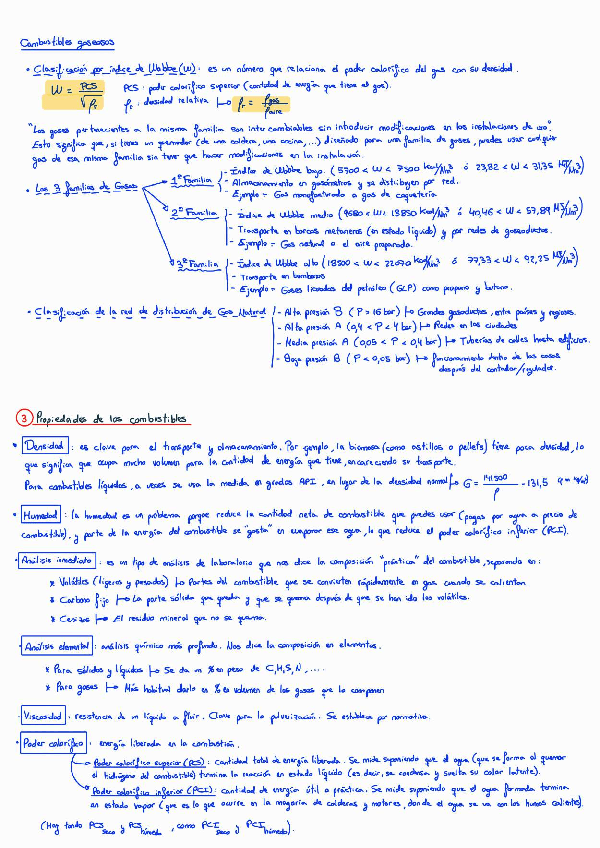 Combustibles gaseosos
• Clasificación por índice de Wobbe (W): es un número que relaciona el poder calorífico del gas con su densidad.
W = PCS / √ρr    PCS: poder calorífico superior (cantidad de energía que tiene el gas).
ρr: densidad relativa ↦ ρr = ρgas / ρaire
"Los gases pertenecientes a la misma familia son intercambiables sin introducir modificaciones en las instalaciones de uso".
Esto significa que, si tienes un quemador (de una caldera, una cocina, ...) diseñado para una familia de gases, puedes usar cualquier
gas de esa misma familia sin tener que hacer modificaciones en la instalación.
• Las 3 familias de Gases
1ª Familia - Índice de Wobbe bajo (5700 < W < 7500 kcal/Nm³ ó 23,82 < W < 31,35 MJ/Nm³)
- Almacenamiento en gasómetros y se distribuyen por red.
- Ejemplo = Gas manufacturado o gas de coquería.
2ª Familia - Índice de Wobbe medio (9680 < W < 13850 kcal/Nm³ ó 40,46 < W < 57,89 MJ/Nm³)
- Transporte en barcos metaneros (en estado líquido) y por redes de gasoductos.
- Ejemplo = Gas natural o el aire propanado.
3ª Familia - Índice de Wobbe alto (18500 < W < 22070 kcal/Nm³ ó 77,33 < W < 92,25 MJ/Nm³)
- Transporte en bombonas
- Ejemplo = Gases licuados del petróleo (GLP) como propano y butano.
• Clasificación de la red de distribución de Gas Natural - Alta presión B (P > 16 bar) ↦ Grandes gasoductos, entre países y regiones.
- Alta presión A (0,4 < P < 4 bar) ↦ Redes en las ciudades
- Media presión A (0,05 < P < 0,4 bar) ↦ Tuberías de calles hasta edificios.
- Baja presión B (P < 0,05 bar) ↦ funcionamiento dentro de las casas
después del contador/regulador.
3 Propiedades de los combustibles
• Densidad: es clave para el transporte y almacenamiento. Por ejemplo, la biomasa (como astillas o pellets) tiene poca densidad, lo
que significa que ocupa mucho volumen para la cantidad de energía que tiene, encareciendo su transporte.
Para combustibles líquidos, a veces se usa la medida en grados API, en lugar de la densidad normal ↦ G = 141.500 / ρ - 131,5
• Humedad: la humedad es un problema porque reduce la cantidad neta de combustible que puedes usar (pagas por agua a precio de
combustible), y parte de la energía del combustible se "gasta" en evaporar ese agua, lo que reduce el poder calorífico inferior (PCI).
• Análisis inmediato: es un tipo de análisis de laboratorio que nos dice la composición "práctica" del combustible, separando en:
* Volátiles (ligeros y pesados) ↦ Partes del combustible que se convierten rápidamente en gas cuando se calientan
* Carbono fijo ↦ La parte sólida que queda y que se quema después de que se han ido los volátiles.
* Cenizas ↦ El residuo mineral que no se quema.
- Análisis elemental: análisis químico más profundo. Nos dice la composición en elementos.
* Para sólidos y líquidos ↦ Se da en % en peso de C, H, S, N, ....
* Para gases ↦ Más habitual darlo en % en volumen de los gases que lo componen
- Viscosidad: resistencia de un líquido a fluir. Clave para la pulverización. Se establece por normativa.
• Poder calorífico: energía liberada en la combustión.
→ Poder calorífico superior (PCS): cantidad total de energía liberada. Se mide suponiendo que el agua (que se forma al quemar
el hidrógeno del combustible) termina la reacción en estado líquido (es decir, se condensa y suelta su calor latente).
→ Poder calorífico inferior (PCI): cantidad de energía útil o práctica. Se mide suponiendo que el agua formada termina
en estado vapor (que es lo que ocurre en la mayoría de calderas y motores, donde el agua se va con los humos calientes).
(Hay tanto PCS seco y PCS húmedo, como PCI seco y PCI húmedo).